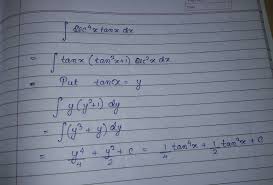 ∫ sec⁴x tanx dx
= ∫ tanx (tan²x+1) sec²x dx
= Put tanx = y
∫ y(y²+1) dy
= ∫(y³+y) dy
= y⁴/4 + y²/2 + c = 1/4 tan⁴x + 1/2 tan²x + C